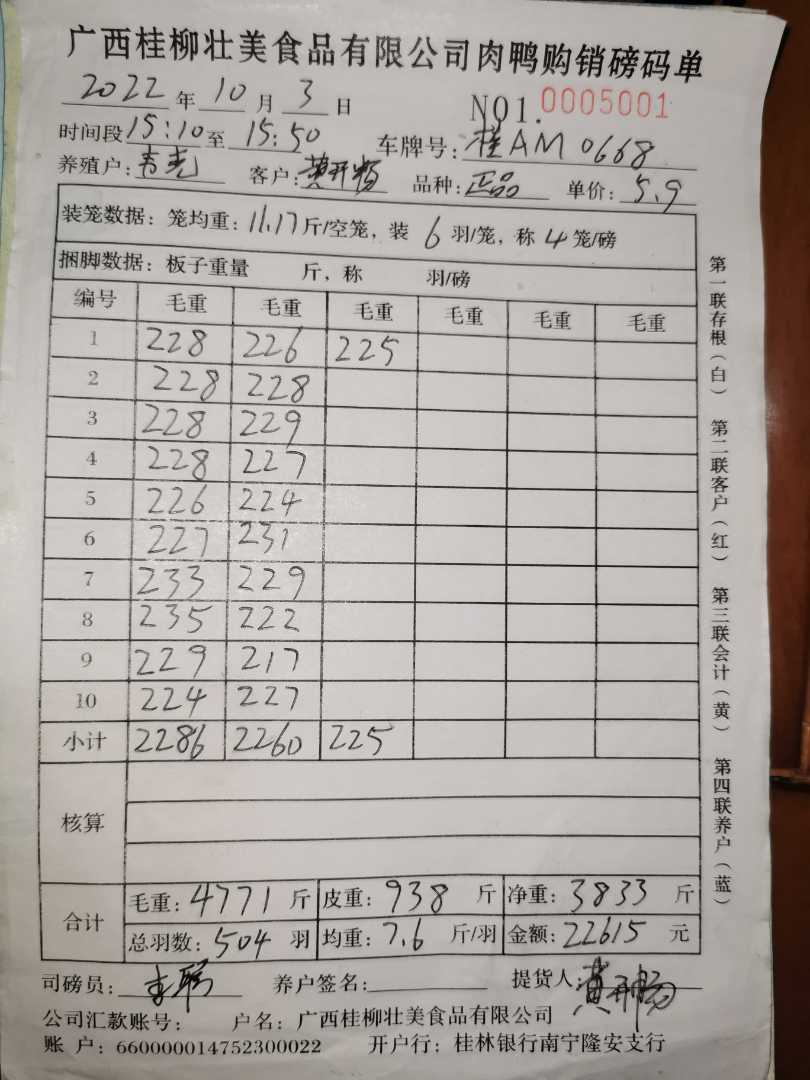 广西桂柳壮美食品有限公司肉鸭购销磅码单
2022年10月3日 NO1.0005001
时间段15:10至15:50 车牌号:桂AM0668
养殖户:韦克 客户:黄开畅 品种:正品 单价:5.9
装笼数据:笼均重:11.17斤/空笼,装6羽/笼,称4笼/磅
捆脚数据:板子重量 斤,称 羽/磅
编号 毛重 毛重 毛重 毛重 毛重 毛重
1 228 226 225
2 228 228
3 228 229
4 228 227
5 226 224
6 227 231
7 233 229
8 235 222
9 229 217
10 224 227
小计 2286 2260 225
核算
合计 毛重:4771斤 皮重:938斤 净重:3833斤
总羽数:504羽 均重:7.6斤/羽 金额:22615元
司磅员: 养户签名: 提货人:黄开畅
公司汇款账号: 户名:广西桂柳壮美食品有限公司
账户:660000014752300022 开户行:桂林银行南宁隆安支行
第一联存根(白) 第二联客户(红) 第三联会计(黄) 第四联养户(蓝)